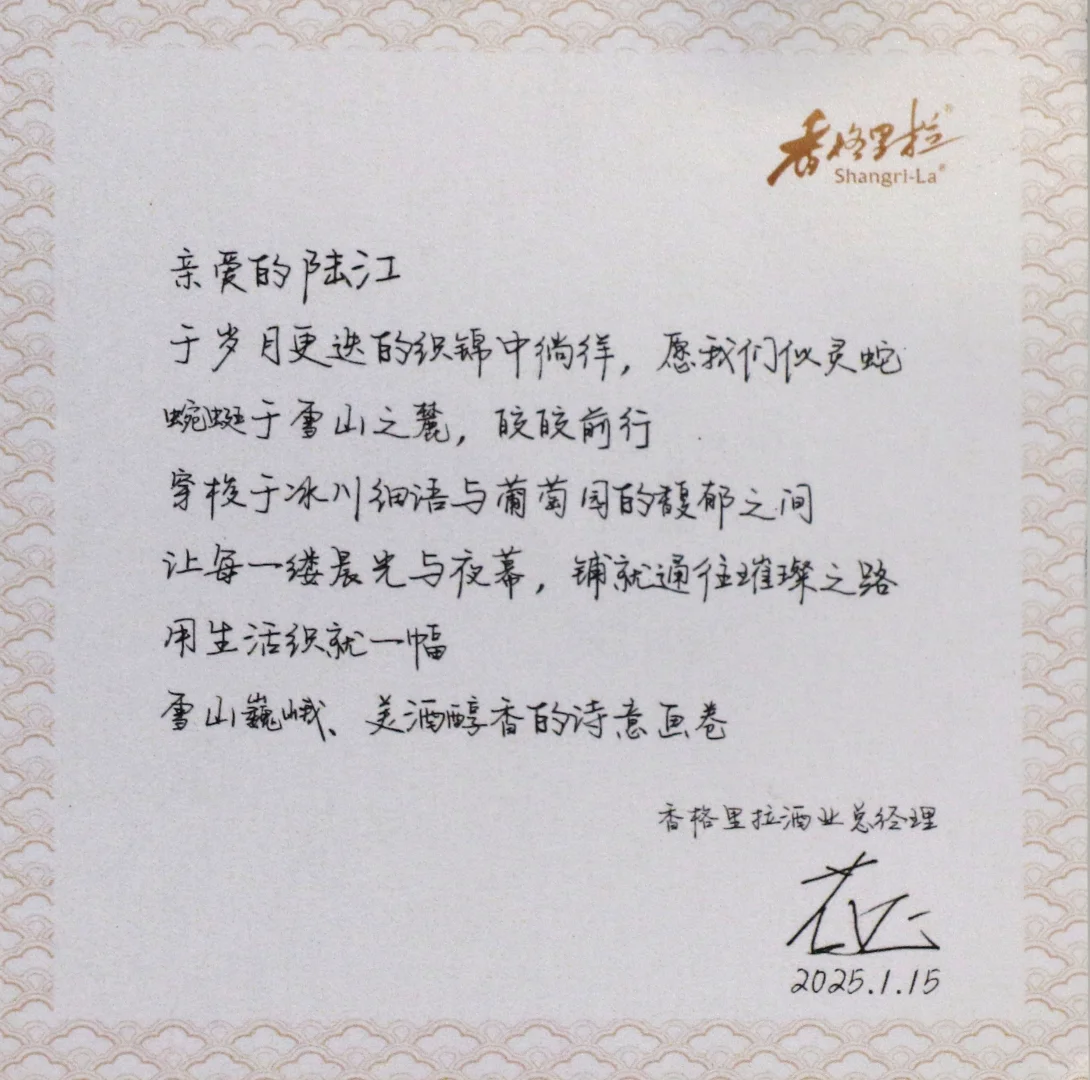 香格里拉®
Shangri-La®
亲爱的陆江
于岁月更迭的织锦中徜徉，愿我们似灵蛇
蜿蜒于雪山之麓，皎皎前行
穿梭于冰川细语与葡萄园的馥郁之间
让每一缕晨光与夜幕，铺就通往璀璨之路
用生活织就一幅
雪山巍峨、美酒醇香的诗意画卷
香格里拉酒业总经理
2025.1.15